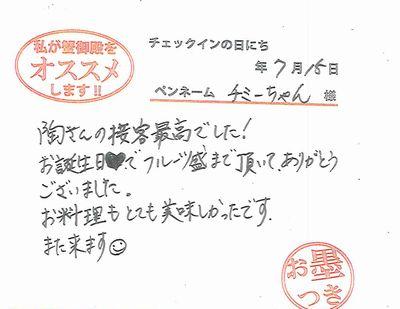 私が蟹御殿を
オススメ
します!!
チェックインの日にち
年7月15日
ペンネーム チミーちゃん 様
陶さんの接客最高でした!
お誕生日♥でフルーツ盛まで頂いて、ありがとう
ございました。
お料理もとても美味しかったです.
また来ます☺
お墨
つき